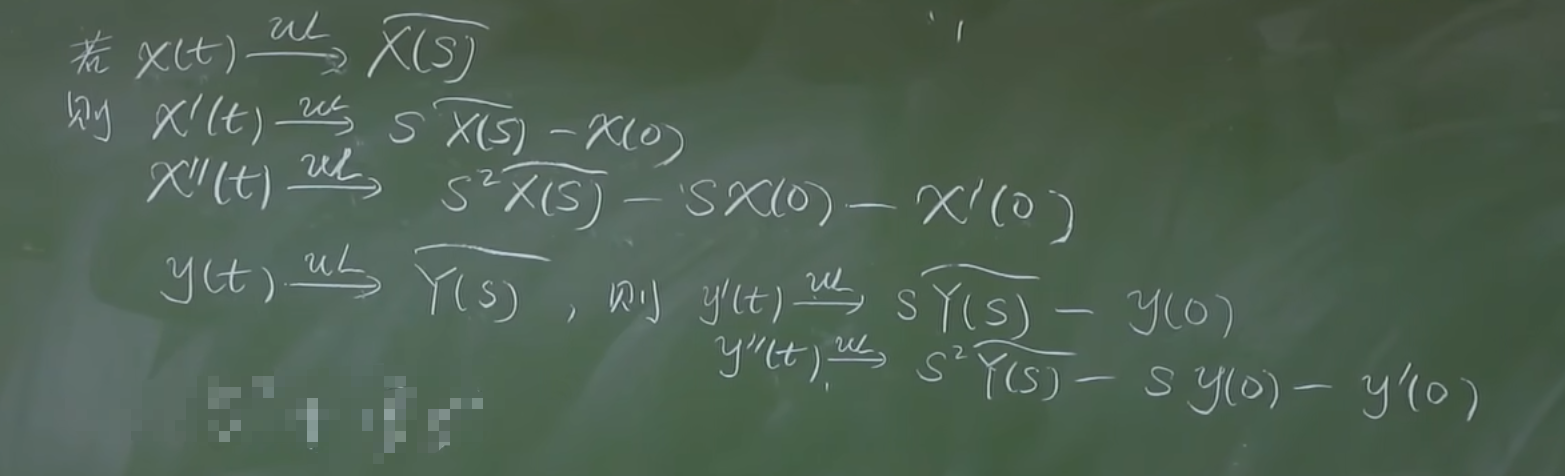 若 x(t) —uL→ \overline{X(S)}
则 x'(t) —uL→ S \overline{X(S)} - x(0)
x''(t) —uL→ S² \overline{X(S)} - S x(0) - x'(0)
y(t) —uL→ \overline{Y(S)} , 则 y'(t) —uL→ S \overline{Y(S)} - y(0)
y''(t) —uL→ S² \overline{Y(S)} - S y(0) - y'(0)